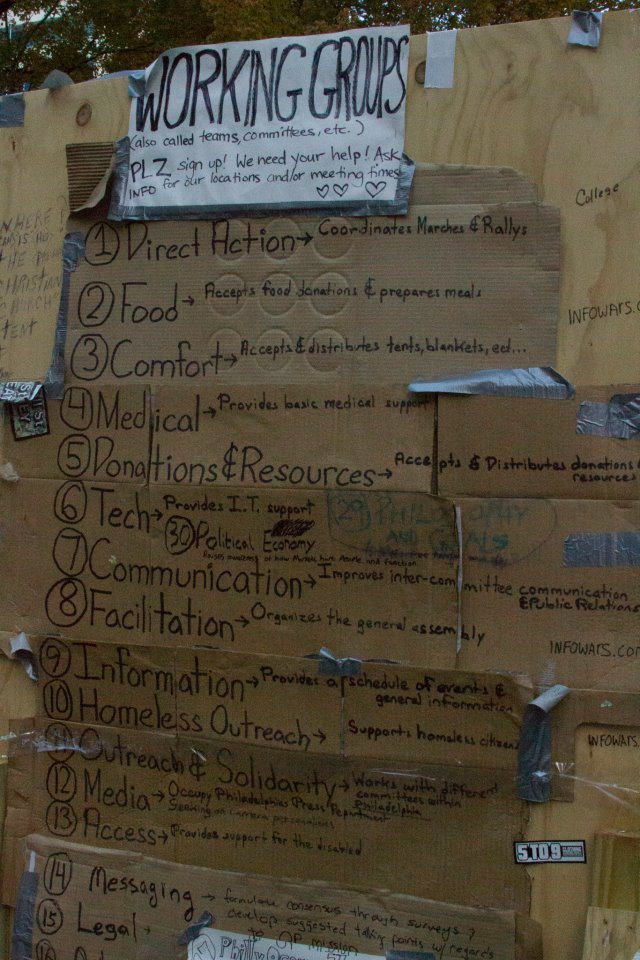 WORKING GROUPS
(also called teams, committees, etc.)
PLZ sign up! We need your help! Ask
INFO for our locations and/or meeting times
College
WHERE
THE
CHRISTIAN
CHURCH
TENT
① Direct Action → Coordinates Marches & Rallys
② Food → Accepts food donations & prepares meals
INFOWARS.C
③ Comfort → Accepts & distributes tents, blankets, ect...
④ Medical → Provides basic medical support
⑤ Donations & Resources → Accepts & Distributes donations &
resources
⑥ Tech → Provides I.T. support
(29) PHILOSOPHY
AND GOALS
(30) Political Economy
⑦ Communication → Improves inter-committee communication
& Public Relations
⑧ Facilitation → Organizes the general assembly
INFOWARS.COM
⑨ Information → Provides a schedule of events &
general information
⑩ Homeless Outreach → Supports homeless citizens
INFOWARS.CO
⑪ Outreach & Solidarity → Works with different
committees within
Philadelphia
⑫ Media → Occupy Philadelphias Press Department
⑬ Access → Provides support for the disabled
5TO9
⑭ Messaging → formulate consensus through surveys ?
develop suggested talking points w/ regards
to OP mission
⑮ Legal →
⑯